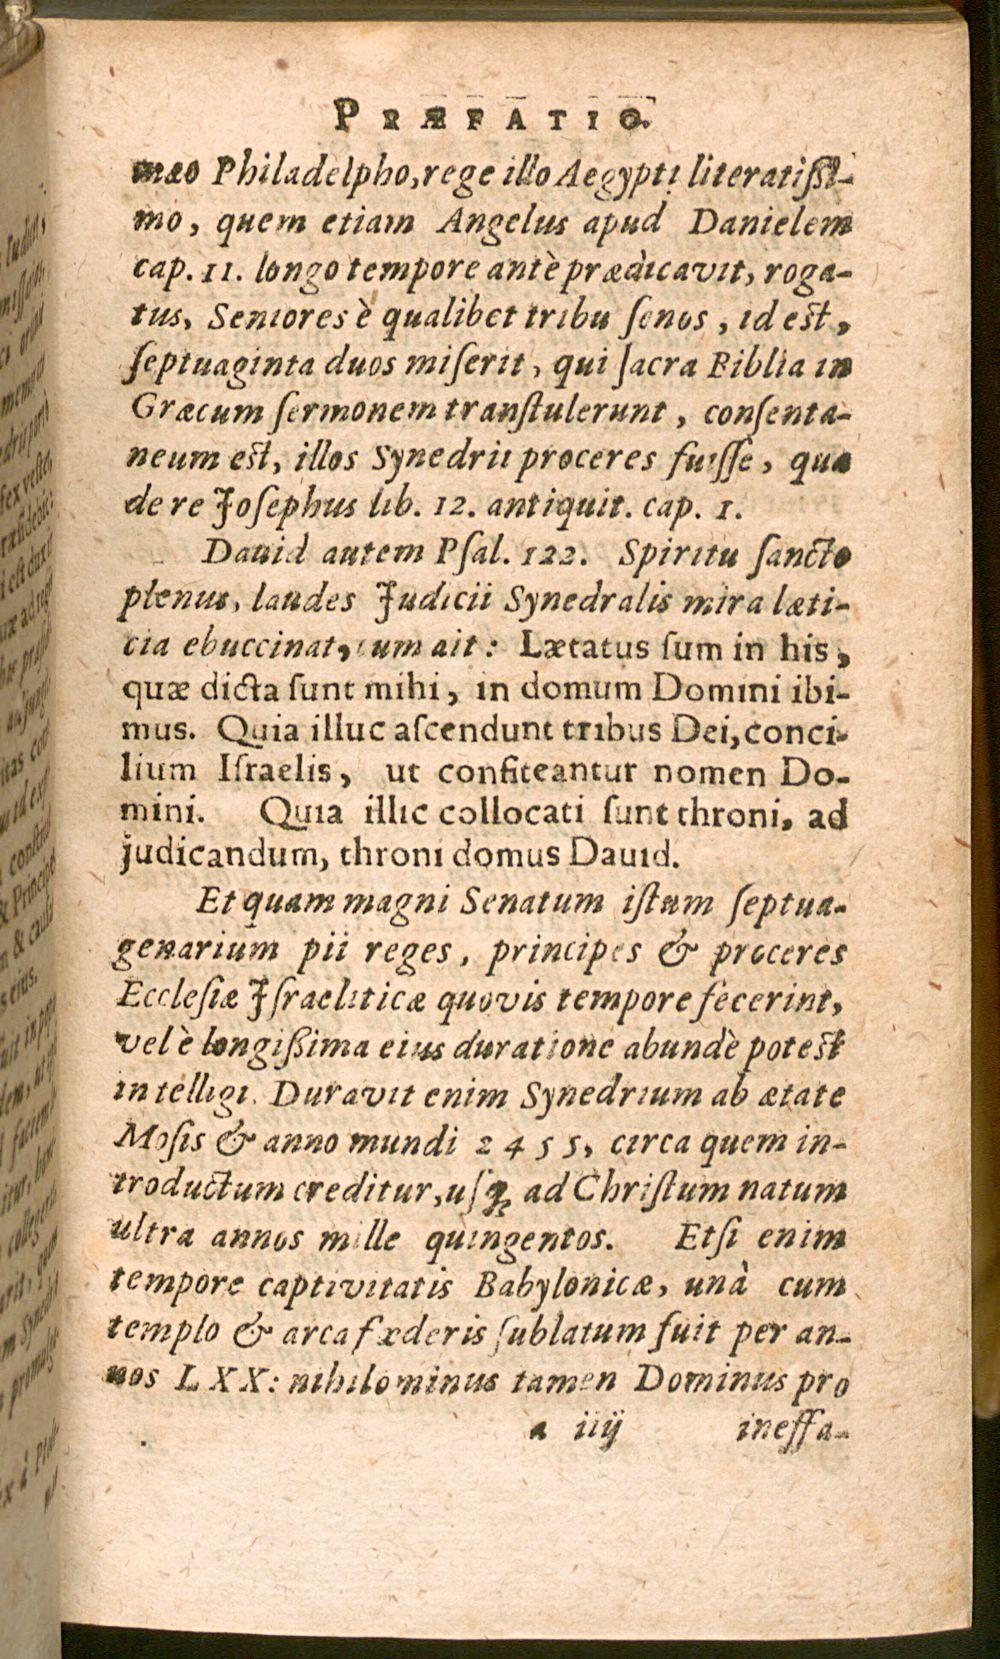 PRÆFATIO.
mæo Philadelpho, rege illo Aegypti literatissi-
mo, quem etiam Angelus apud Danielem
cap. 11. longo tempore antè prædicavit, roga-
tus, Seniores è qualibet tribu senos, id est,
septuaginta duos miserit, qui sacra Biblia in
Græcum sermonem transtulerunt, consenta-
neum est, illos Synedrii proceres fuisse, qua
de re Josephus lib. 12. antiquit. cap. 1.
Dauid autem Psal. 122. Spiritu sancto
plenus, laudes Judicii Synedralis mira læti-
cia ebuccinat, cum ait: Lætatus sum in his,
quæ dicta sunt mihi, in domum Domini ibi-
mus. Quia illuc ascendunt tribus Dei, conci-
lium Israelis, ut confiteantur nomen Do-
mini. Quia illic collocati sunt throni, ad
judicandum, throni domus Dauid.
Et quam magni Senatum istum septua-
genarium pii reges, principes & proceres
Ecclesiæ Jsraeliticæ quovis tempore fecerint,
vel è longissima eius duratione abundè potest
intelligi. Duravit enim Synedrium ab ætate
Mosis & anno mundi 2455, circa quem in-
troductum creditur, usq; ad Christum natum
ultra annos mille quingentos. Etsi enim
tempore captivitatis Babylonicæ, unà cum
templo & arca fæderis sublatum fuit per an-
nos LXX: nihilominus tamen Dominus pro
a iiij ineffa-